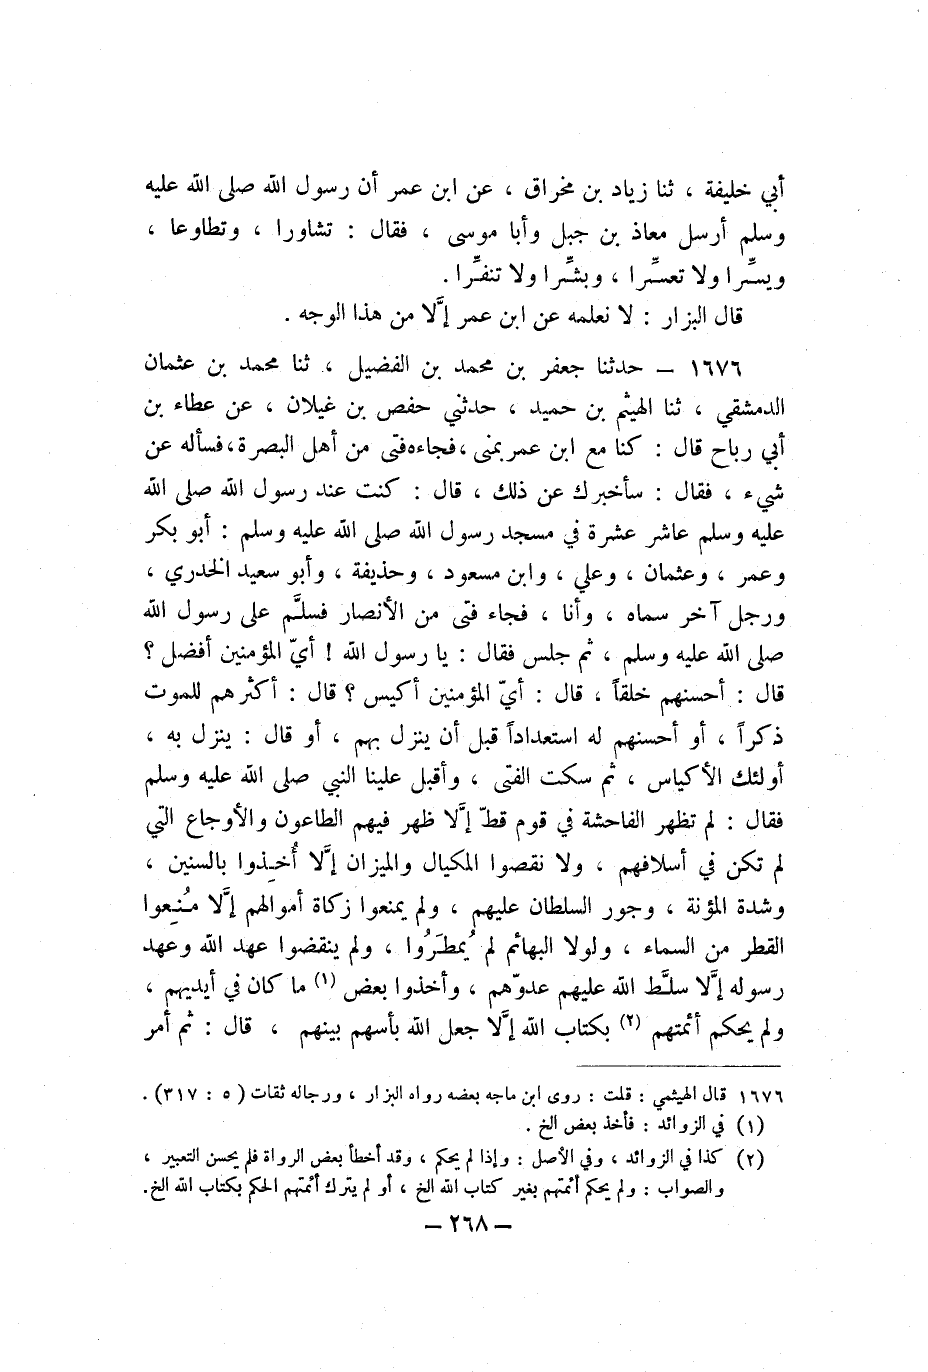 أبي خليفة ، ثنا زياد بن مخراق ، عن ابن عمر أن رسول الله صلى الله عليه
وسلم أرسل معاذ بن جبل وأبا موسى ، فقال : تشاورا ، وتطاوعا ،
ويسِّرا ولا تعسِّرا ، وبشِّرا ولا تنفِّرا .
قال البزار : لا نعلمه عن ابن عمر إلَّا من هذا الوجه .
١٦٧٦ – حدثنا جعفر بن محمد بن الفضيل ، ثنا محمد بن عثمان
الدمشقي ، ثنا الهيثم بن حميد ، حدثني حفص بن غيلان ، عن عطاء بن
أبي رباح قال : كنا مع ابن عمر بمنى ، فجاءه فتى من أهل البصرة ، فسأله عن
شيء ، فقال : سأخبرك عن ذلك ، قال : كنت عند رسول الله صلى الله
عليه وسلم عاشر عشرة في مسجد رسول الله صلى الله عليه وسلم : أبو بكر
وعمر ، وعثمان ، وعلي ، وابن مسعود ، وحذيفة ، وأبو سعيد الخدري ،
ورجل آخر سماه ، وأنا ، فجاء فتى من الأنصار فسلَّم على رسول الله
صلى الله عليه وسلم ، ثم جلس فقال : يا رسول الله ! أيّ المؤمنين أفضل ؟
قال : أحسنهم خلقاً ، قال : أيّ المؤمنين أكيس ؟ قال : أكثرهم للموت
ذكراً ، أو أحسنهم له استعداداً قبل أن ينزل بهم ، أو قال : ينزل به ،
أولئك الأكياس ، ثم سكت الفتى ، وأقبل علينا النبي صلى الله عليه وسلم
فقال : لم تظهر الفاحشة في قوم قطّ إلَّا ظهر فيهم الطاعون والأوجاع التي
لم تكن في أسلافهم ، ولا نقصوا المكيال والميزان إلَّا أُخِذوا بالسنين ،
وشدة المؤنة ، وجور السلطان عليهم ، ولم يمنعوا زكاة أموالهم إلَّا مُنِعوا
القطر من السماء ، ولولا البهائم لم يُمطَرُوا ، ولم ينقضوا عهد الله وعهد
رسوله إلَّا سلَّط الله عليهم عدوّهم ، وأخذوا بعض (١) ما كان في أيديهم ،
ولم يحكم أئمتهم (٢) بكتاب الله إلَّا جعل الله بأسهم بينهم ، قال : ثم أمر
١٦٧٦ قال الهيثمي : قلت : روى ابن ماجه بعضه رواه البزار ، ورجاله ثقات ( ٥ : ٣١٧ ) .
(١) في الزوائد : فأخذ بعض الخ .
(٢) كذا في الزوائد ، وفي الأصل : وإذا لم يحكم ، وقد أخطأ بعض الرواة فلم يحسن التعبير ،
والصواب : ولم يحكم أئمتهم بغير كتاب الله الخ ، أو لم يترك أئمتهم الحكم بكتاب الله الخ .
– ٢٦٨ –